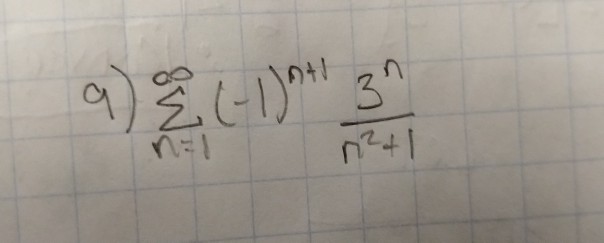 9) ∞∑n=1 (-1)^{n+1} 3^n/(n^2+1)